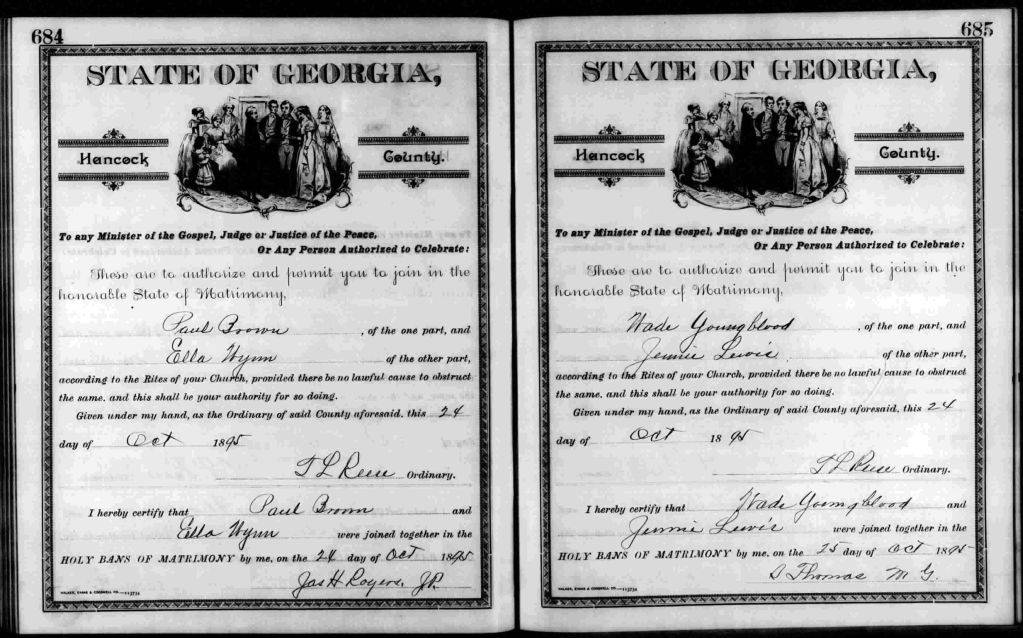 684
STATE OF GEORGIA,
Hancock County.
To any Minister of the Gospel, Judge or Justice of the Peace,
Or Any Person Authorized to Celebrate:
These are to authorize and permit you to join in the
honorable State of Matrimony,
Paul Brown , of the one part, and
Ella Wynn of the other part,
according to the Rites of your Church, provided there be no lawful cause to obstruct
the same, and this shall be your authority for so doing.
Given under my hand, as the Ordinary of said County aforesaid, this 24
day of Oct 1895
T L Reese Ordinary.
I hereby certify that Paul Brown and
Ella Wynn were joined together in the
HOLY BANS OF MATRIMONY by me, on the 24 day of Oct 1895
Jas H Rogers, J.P.
WALKER, EVANS & COGSWELL CO.—113734
685
STATE OF GEORGIA,
Hancock County.
To any Minister of the Gospel, Judge or Justice of the Peace,
Or Any Person Authorized to Celebrate:
These are to authorize and permit you to join in the
honorable State of Matrimony,
Wade Youngblood , of the one part, and
Jennie Lewis of the other part,
according to the Rites of your Church, provided there be no lawful cause to obstruct
the same, and this shall be your authority for so doing.
Given under my hand, as the Ordinary of said County aforesaid, this 24
day of Oct 1895
T L Reese Ordinary.
I hereby certify that Wade Youngblood and
Jennie Lewis were joined together in the
HOLY BANS OF MATRIMONY by me, on the 25 day of Oct 1895
S Thomas M G.
WALKER, EVANS & COGSWELL CO.—113734